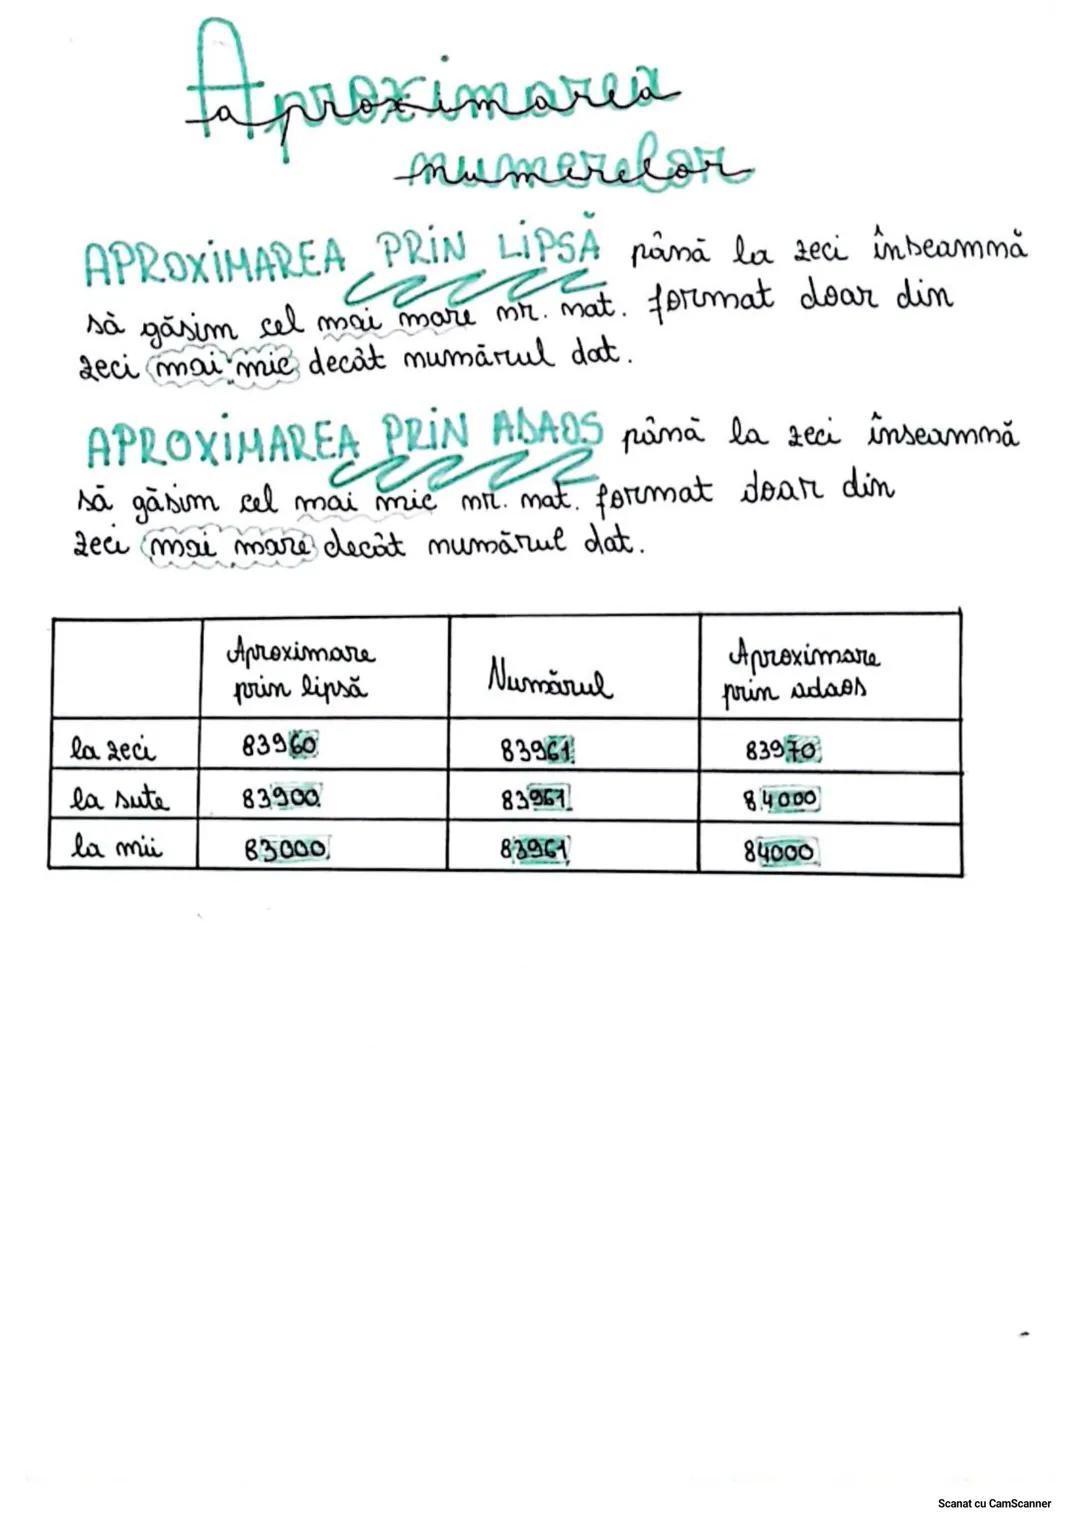 Aproximarea
numerelor
APROXIMAREA PRIN LIPSĂ până la zeci înseamnă
să găsim cel mai mare nr. nat. format doar din
zeci mai mic decât numărul dat.
APROXIMAREA PRIN ADAOS până la zeci înseamnă
să găsim cel mai mic nr. nat. format doar din
zeci mai mare decât numărul dat.
Aproximare prin lipsă Numărul Aproximare prin adaos
la zeci 83960 83961 83970
la sute 83900 83961 84000
la mii 83000 83961 84000
Scanat cu CamScanner